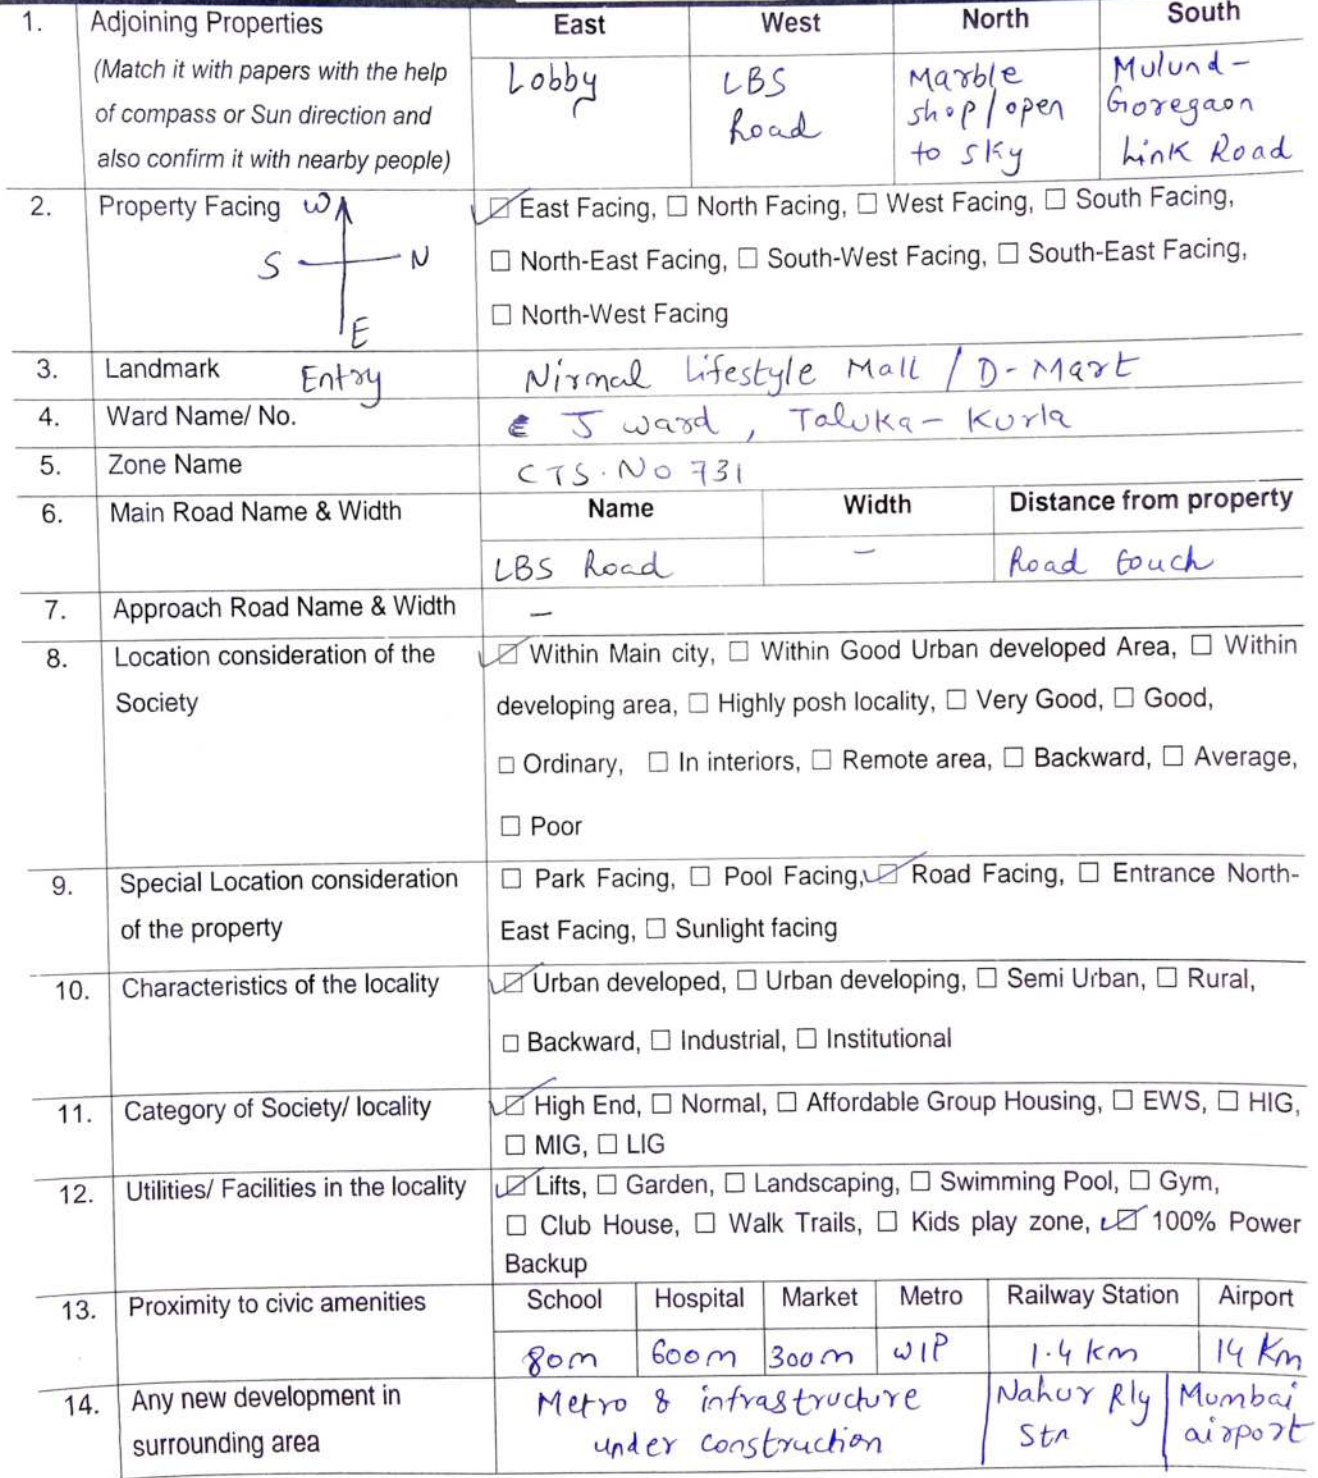 1. Adjoining Properties East West North South
(Match it with papers with the help of compass or Sun direction and also confirm it with nearby people)
Lobby
LBS Road
Marble shop/open to sky
Mulund-Goregaon Link Road
2. Property Facing
W
S N
E
Entry
☑ East Facing, ☐ North Facing, ☐ West Facing, ☐ South Facing,
☐ North-East Facing, ☐ South-West Facing, ☐ South-East Facing,
☐ North-West Facing
3. Landmark Nirmal Lifestyle Mall / D-Mart
4. Ward Name/ No. J ward, Taluka- Kurla
5. Zone Name CTS.No 731
6. Main Road Name & Width Name Width Distance from property
LBS Road - Road touch
7. Approach Road Name & Width -
8. Location consideration of the Society
☑ Within Main city, ☐ Within Good Urban developed Area, ☐ Within
developing area, ☐ Highly posh locality, ☐ Very Good, ☐ Good,
☐ Ordinary, ☐ In interiors, ☐ Remote area, ☐ Backward, ☐ Average,
☐ Poor
9. Special Location consideration of the property
☐ Park Facing, ☐ Pool Facing, ☑ Road Facing, ☐ Entrance North-
East Facing, ☐ Sunlight facing
10. Characteristics of the locality
☑ Urban developed, ☐ Urban developing, ☐ Semi Urban, ☐ Rural,
☐ Backward, ☐ Industrial, ☐ Institutional
11. Category of Society/ locality
☑ High End, ☐ Normal, ☐ Affordable Group Housing, ☐ EWS, ☐ HIG,
☐ MIG, ☐ LIG
12. Utilities/ Facilities in the locality
☑ Lifts, ☐ Garden, ☐ Landscaping, ☐ Swimming Pool, ☐ Gym,
☐ Club House, ☐ Walk Trails, ☐ Kids play zone, ☑ 100% Power
Backup
13. Proximity to civic amenities School Hospital Market Metro Railway Station Airport
80m 600m 300m WIP 1.4 km 14 Km
14. Any new development in surrounding area
Metro & infrastructure under construction
Nahur Rly Stn
Mumbai airport